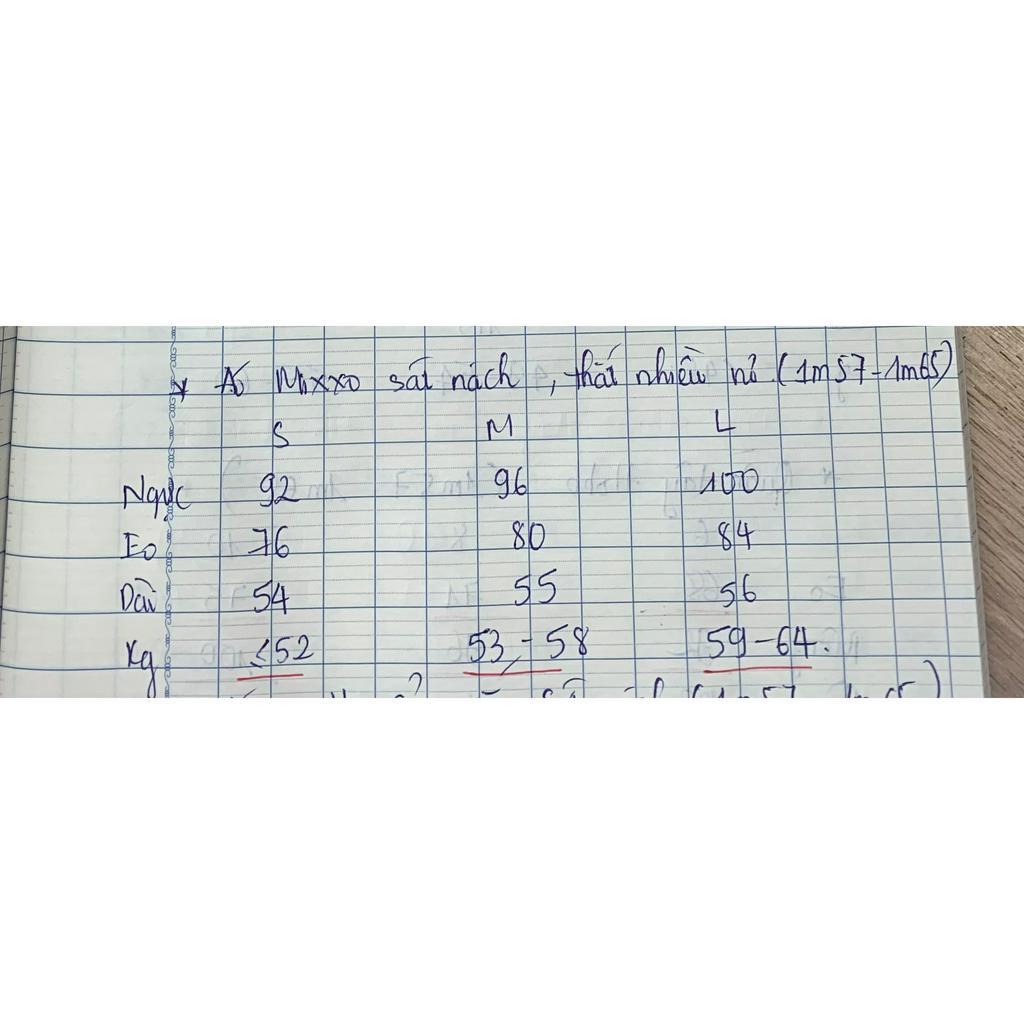 * Áo Mixxo sát nách, thắt nhiều nơ (1m57-1m65)
S M L
Ngực 92 96 100
Eo 76 80 84
Dài 54 55 56
Kg ≤52 53-58 59-64.